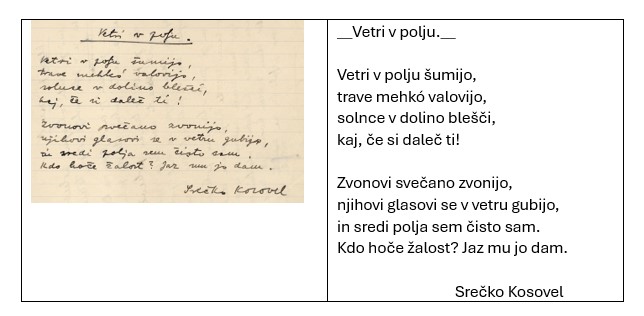 Vetri v polju.
Vetri v polju šumijo,
trave mehkó valovijo,
solnce v dolino blešči,
kaj, če si daleč ti!
Zvonovi svečano zvonijo,
njihovi glasovi se v vetru gubijo,
in sredi polja sem čisto sam.
Kdo hoče žalost? Jaz mu jo dam.
Srečko Kosovel
__Vetri v polju.__
Vetri v polju šumijo,
trave mehkó valovijo,
solnce v dolino blešči,
kaj, če si daleč ti!
Zvonovi svečano zvonijo,
njihovi glasovi se v vetru gubijo,
in sredi polja sem čisto sam.
Kdo hoče žalost? Jaz mu jo dam.
Srečko Kosovel